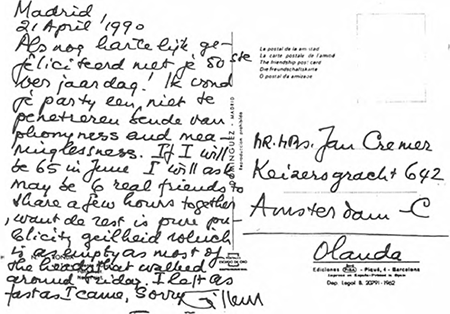 Madrid
21 April 1990
Als nog hartelijk ge-
feliciteerd met je 50ste
ver jaardag! Ik vond
je party een niet te
penetreren bende van
phonyness and mea-
ninglessness. If I will
be 65 in June I will ask
may be 6 real friends to
share a few hours together
, want de rest is pure pu-
blicity geilheid which
is as empty as most of
the heads that walked
around Friday. I left as
fast as I came, Sorry
DOMINGUEZ - MADRID
Reproduction prohibida
La postal de la amistad
La carte postale de l'amitié
The friendship post card
Die freundschaftskarte
O postal da amizade
MR. MRS. Jan Cremer
Keizersgracht 642
Amsterdam - C
Olanda
Ediciones Piqué, 4 - Barcelona
Dep. Legal B. 20791-1962